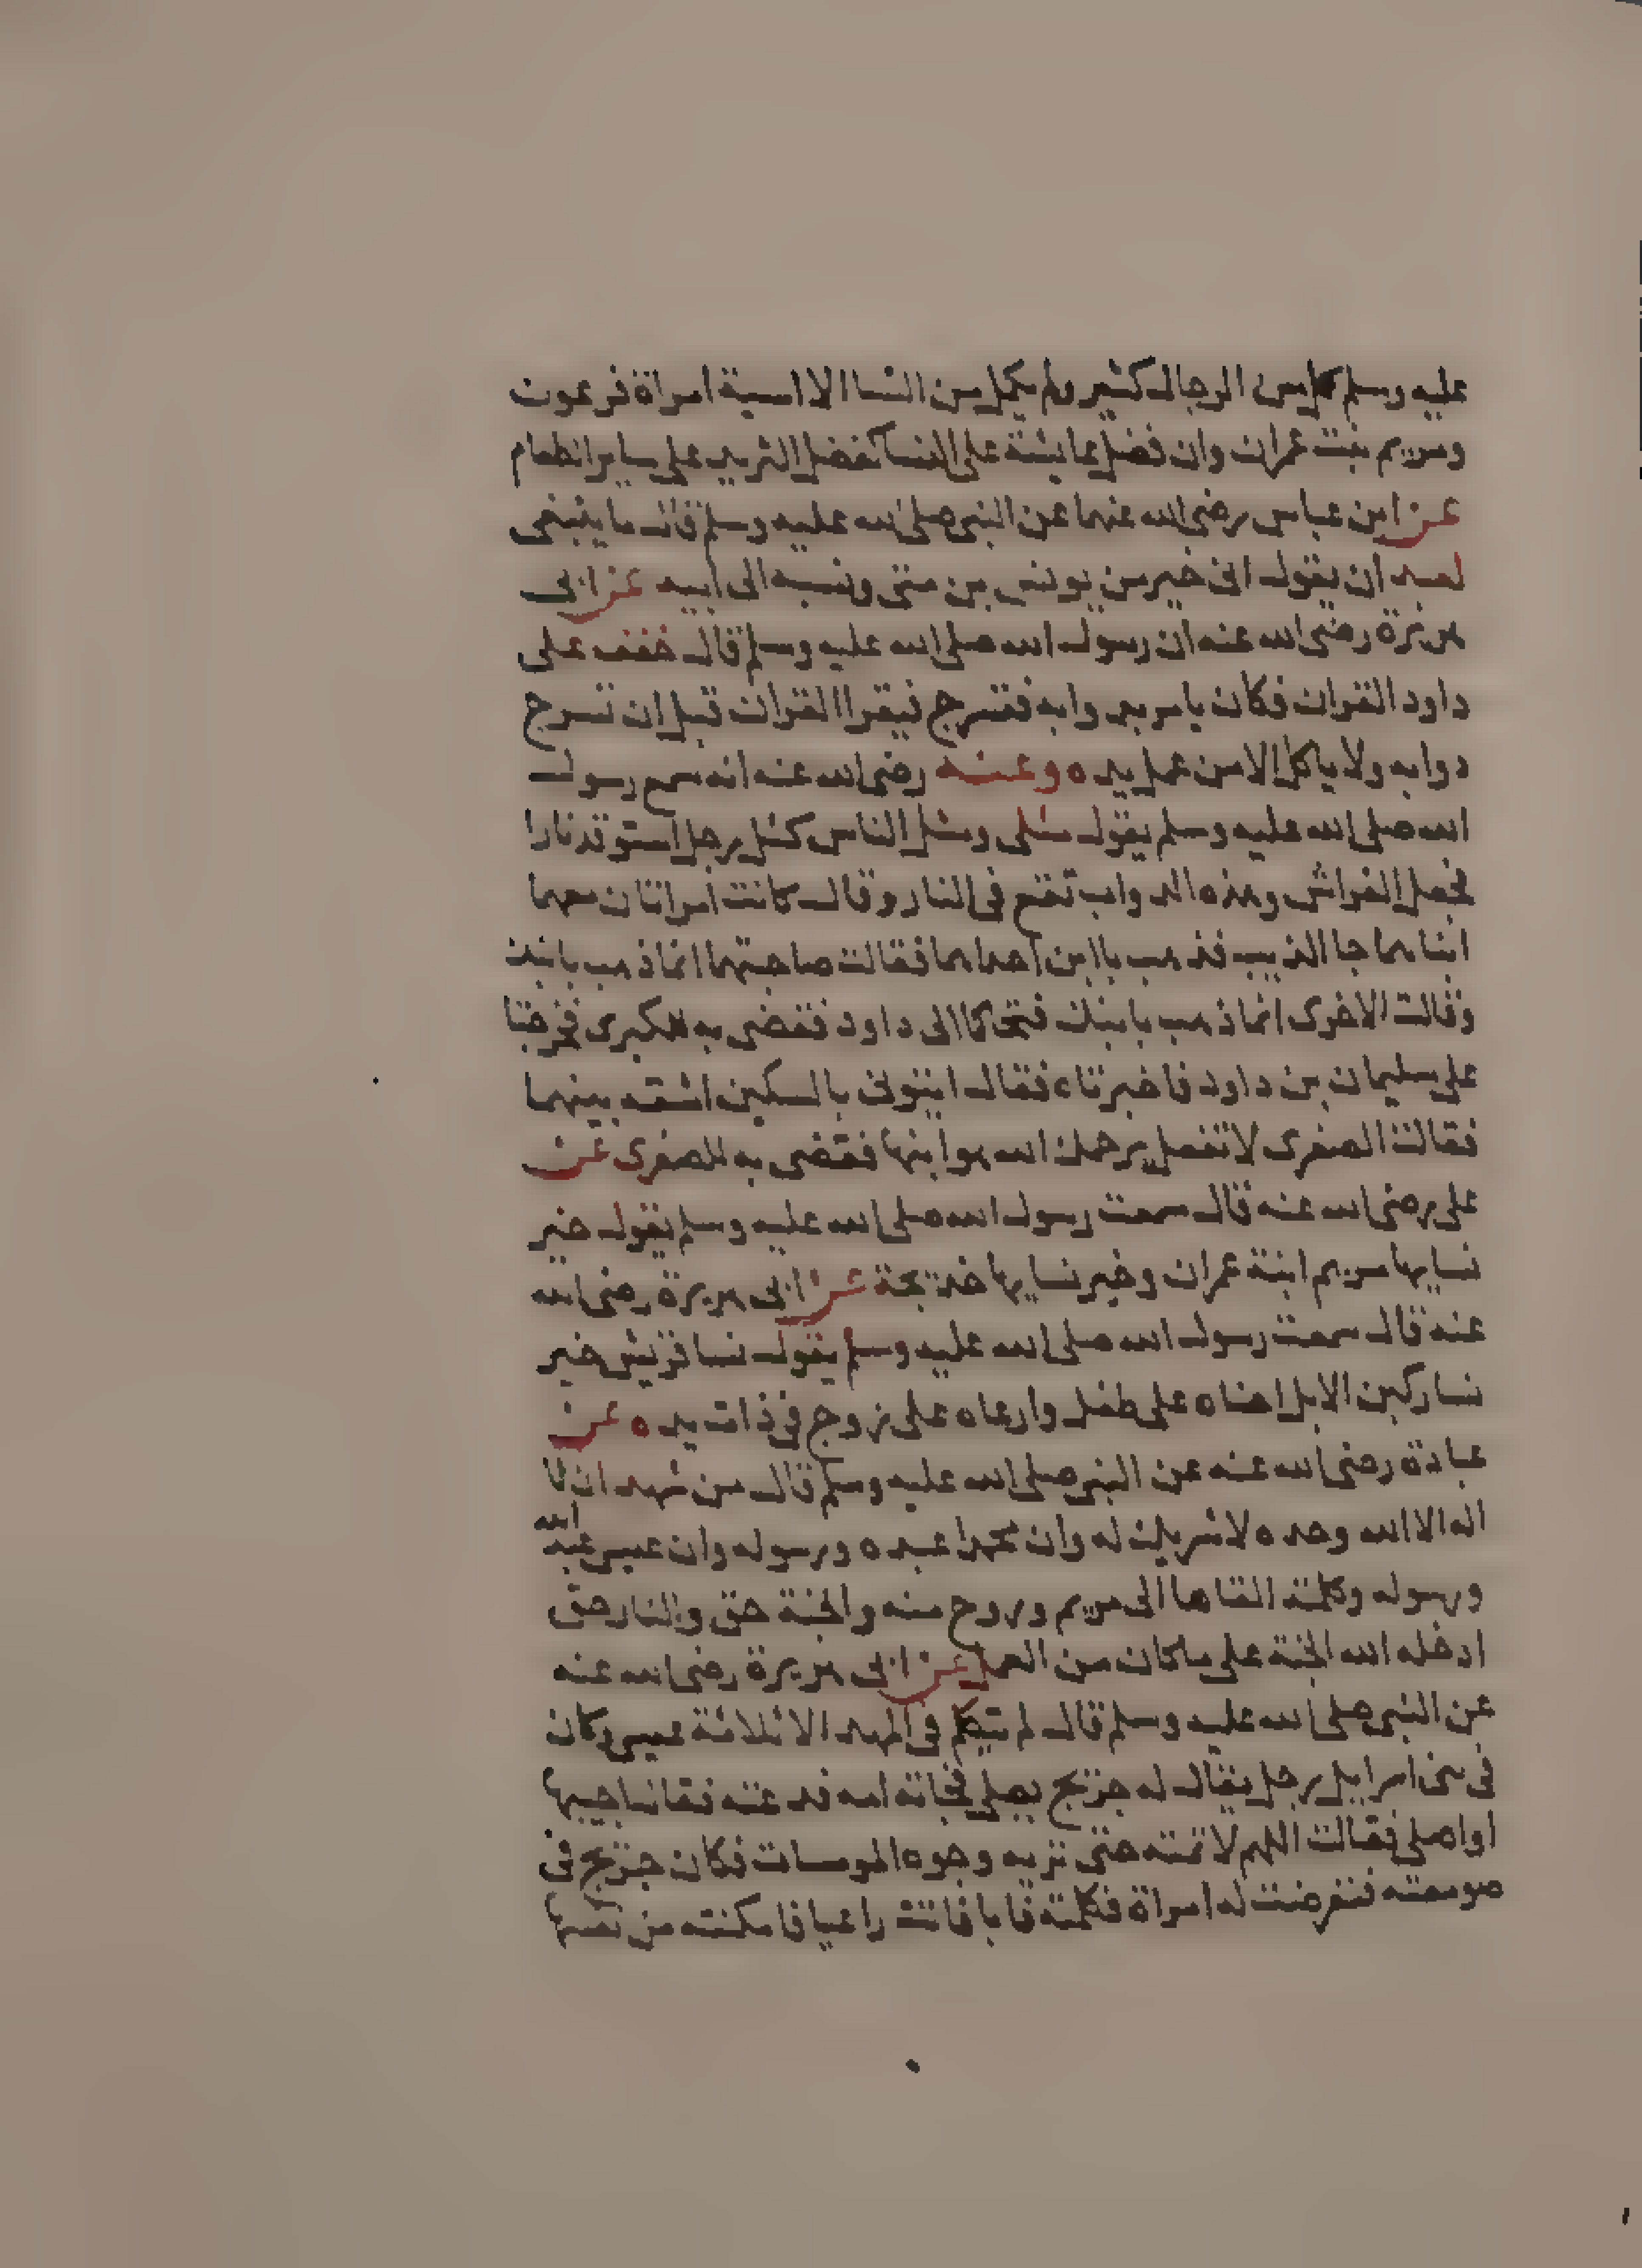 عليه وسلم كمل من الرجال كثير ولم يكمل من النسا الا اسية امراة فرعون
ومريم بنت عمران وان فضل عايشة على النسا كفضل الثريد على ساير الطعام
عن ابن عباس رضى الله عنهما عن النبى صلى الله عليه وسلم قال ما ينبغى
لعبد ان يقول انى خير من يونس بن متى ونسبه الى ابيه عن ابى
هريرة رضى الله عنه ان رسول الله صلى الله عليه وسلم قال خفف على
داود القران فكان يامر بدوابه فتسرج فيقرا القران قبل ان تسرج
دوابه ولا ياكل الا من عمل يده وعنه رضى الله عنه انه سمع رسول
الله صلى الله عليه وسلم يقول مثلى ومثل الناس كمثل رجل استوقد نارا
فجعل الفراش وهذه الدواب تقع فى النار وقال كانت امراتان معهما
ابناهما جا الذيب فذهب باابن احداهما فقالت صاحبتها انما ذهب بابنك
وقالت الاخرى انما ذهب بابنك فتحاكما الى داود فقضى به للكبرى فخرجتا
على سليمان بن داود فاخبرتاه فقال ايتونى بالسكين اشقه بينهما
فقالت الصغرى لا تفعل يرحمك الله هو ابنها فقضى به للصغرى عن
على رضى الله عنه قال سمعت رسول الله صلى الله عليه وسلم يقول خير
نسايها مريم ابنة عمران وخير نسايها خديجة عن ابى هريرة رضى الله
عنه قال سمعت رسول الله صلى الله عليه وسلم يقول نسا قريش خير
نسا ركبن الابل احناه على طفل وارعاه على زوج فى ذات يده عن
عبادة رضى الله عنه عن النبى صلى الله عليه وسلم قال من شهد ان لا
اله الا الله وحده لا شريك له وان محمدا عبده ورسوله وان عيسى عبد الله
ورسوله وكلمته القاها الى مريم وروح منه والجنة حق والنار حق
ادخله الله الجنة على ما كان من العمل عن ابى هريرة رضى الله عنه
عن النبى صلى الله عليه وسلم قال لم يتكلم فى المهد الا ثلاثة عيسى وكان
فى بنى اسرايل رجل يقال له جريج يصلى فجاته امه فدعته فقال اجيبها
او اصلى فقالت اللهم لا تمته حتى تريه وجوه المومسات فكان جريج فى
صومعته فتعرضت له امراة فكلمته فابا فاتت راعيا فامكنته من نفسها